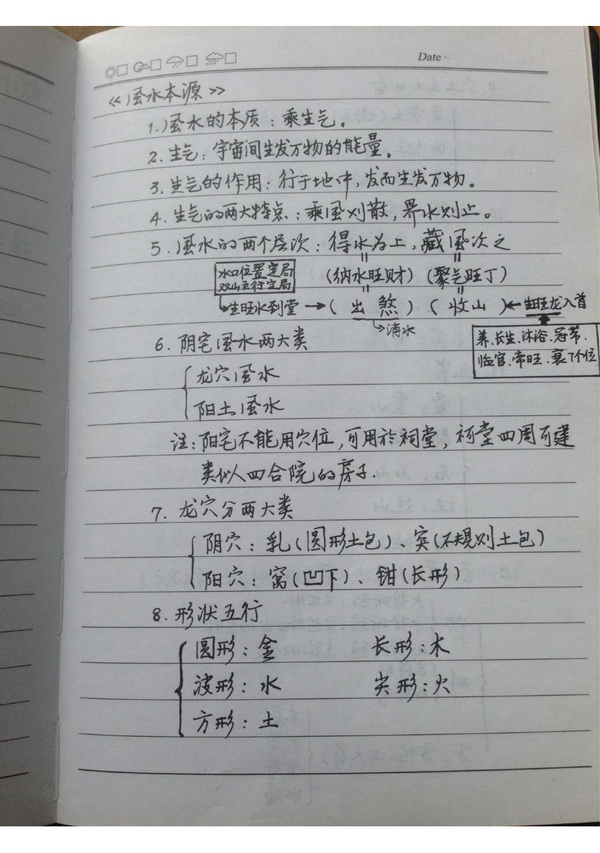 Date
《风水本源》
1.风水的本质：乘生气。
2.生气：宇宙间生发万物的能量。
3.生气的作用：行于地中，发而生发万物。
4.生气的两大特点：乘风则散，界水则止。
5.风水的两个层次：得水为上，藏风次之
水口位置定局
双山五行定局
(纳水旺财) (聚气旺丁)
生旺水到堂→(出煞) (收山)←生旺龙入首
→消水
养、长生、沐浴、冠带、
临官、帝旺、衰7个位
6.阴宅风水两大类
龙穴风水
阳土风水
注：阳宅不能用穴位，可用於祠堂，祠堂四周可建
类似四合院的房子.
7.龙穴分两大类
阴穴：乳(圆形土包)、突(不规则土包)
阳穴：窝(凹下)、钳(长形)
8.形状五行
圆形：金 长形：木
波形：水 尖形：火
方形：土